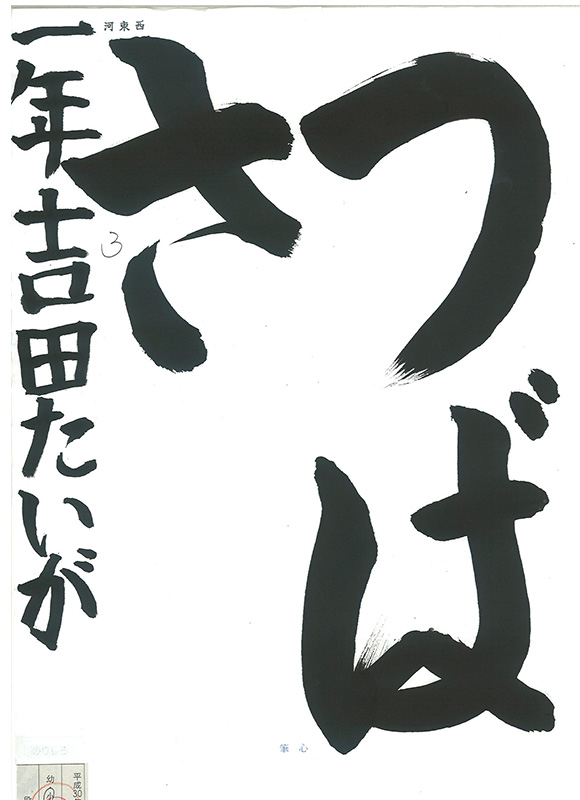 つば
さ
西東河
一年吉田たいが
3
心筆
のりしろ
平成30年
幼